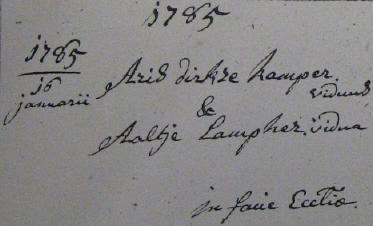 1785
1785
16
januarii
Arid dirkse Kamper.
viduus
&
Aaltje Lampher. vidua
in facie Ecclię.